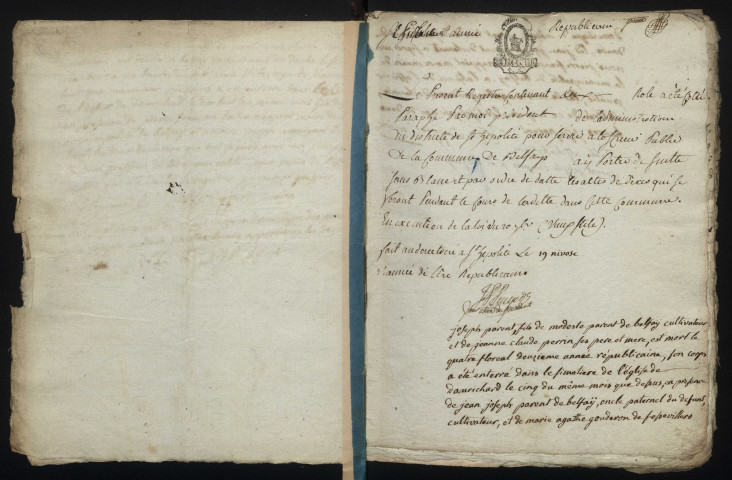 année Republicaine
Present Registre Contenant deux Role a été Coté
Paraphé Par moi président de l'administration
du district de St hypolite pour servir a l'officier Public
De la Commune De Belfays a y Porter de suitte
Sans Blanc et par ordre de datte les actes de deces qui se
feront Pendant le Cours de cordette dans Cette Commune.
En execution de la loi du 20 7bre (vieux stile).
fait au directoire a St hypolite Le 19 nivose
2 année de l'ère Republicaine
joseph parent, fils de modeste parent de belfaÿ cultivateur
et de jeanne claude perrin ses pere et mere, est mort le
quatre floreal deuzieme année républicaine, son corps
a été enterré dans le simetiere de l'église de
Daurichard le cinq du même mois que dessus, en presence
de jean joseph parent de belfaÿ, oncle paternel du defunt,
cultivateur, et de marie agathe gouderon de fessevillers